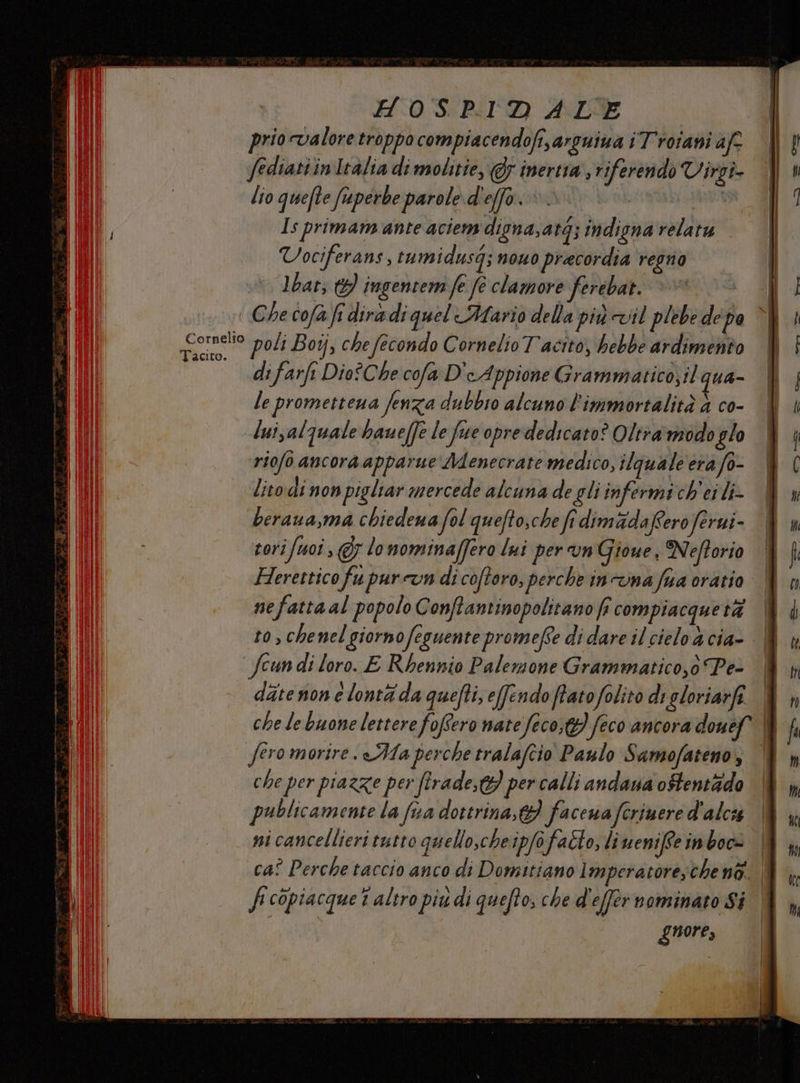 HOSPIDALE
prio valore troppo compiacendosi, arguiua i Troiani as-
sediati in Italia di molitie, & inertia, riferendo Virgi-
lio queste superbe parole d'esso.
Is primam ante aciem digna, atq; indigna relatu
Vociferans, tumidusq; nouo præcordia regno
Ibat, & ingentem se se clamore ferebat.
Che cosa si dirà di quel Mario della più vil plebe de pa
Cornelio Tacito.
poli Boij, che secondo Cornelio Tacito, hebbe ardimento
di farsi Dio? Che cosa D'Appione Grammatico, il qua-
le prometteua senza dubbio alcuno l'immortalità à co-
lui, al quale hauesse le sue opre dedicato? Oltra modo glo
rioso ancora apparue Menecrate medico, ilquale era so-
lito di non pigliar mercede alcuna de gli infermi ch'ei li-
beraua, ma chiedeua sol questo, che si dimãdassero serui-
tori suoi, & lo nominassero lui per vn Gioue, Nestorio
Herettico fu pur vn di costoro, perche in vna sua oratio
ne fatta al popolo Constantinopolitano si compiacque tã
to, che nel giorno seguente promesse di dare il cielo à cia-
scun di loro. E Rhennio Palemone Grammatico, ò Pe-
dãte non è lontã da questi, essendo stato solito di gloriarsi
che le buone lettere fossero nate seco, & seco ancora douess
sero morire. Ma perche tralascio Paulo Samosateno,
che per piazze per strade, & per calli andaua ostentãdo
publicamente la sua dottrina, & faceua scriuere d'alcu
ni cancellieri tutto quello, che ipso facto, li uenisse in boc-
ca? Perche taccio anco di Domitiano Imperatore, che nõ
si cõpiacque ĩ altro più di questo, che d'esser nominato Si
gnore,